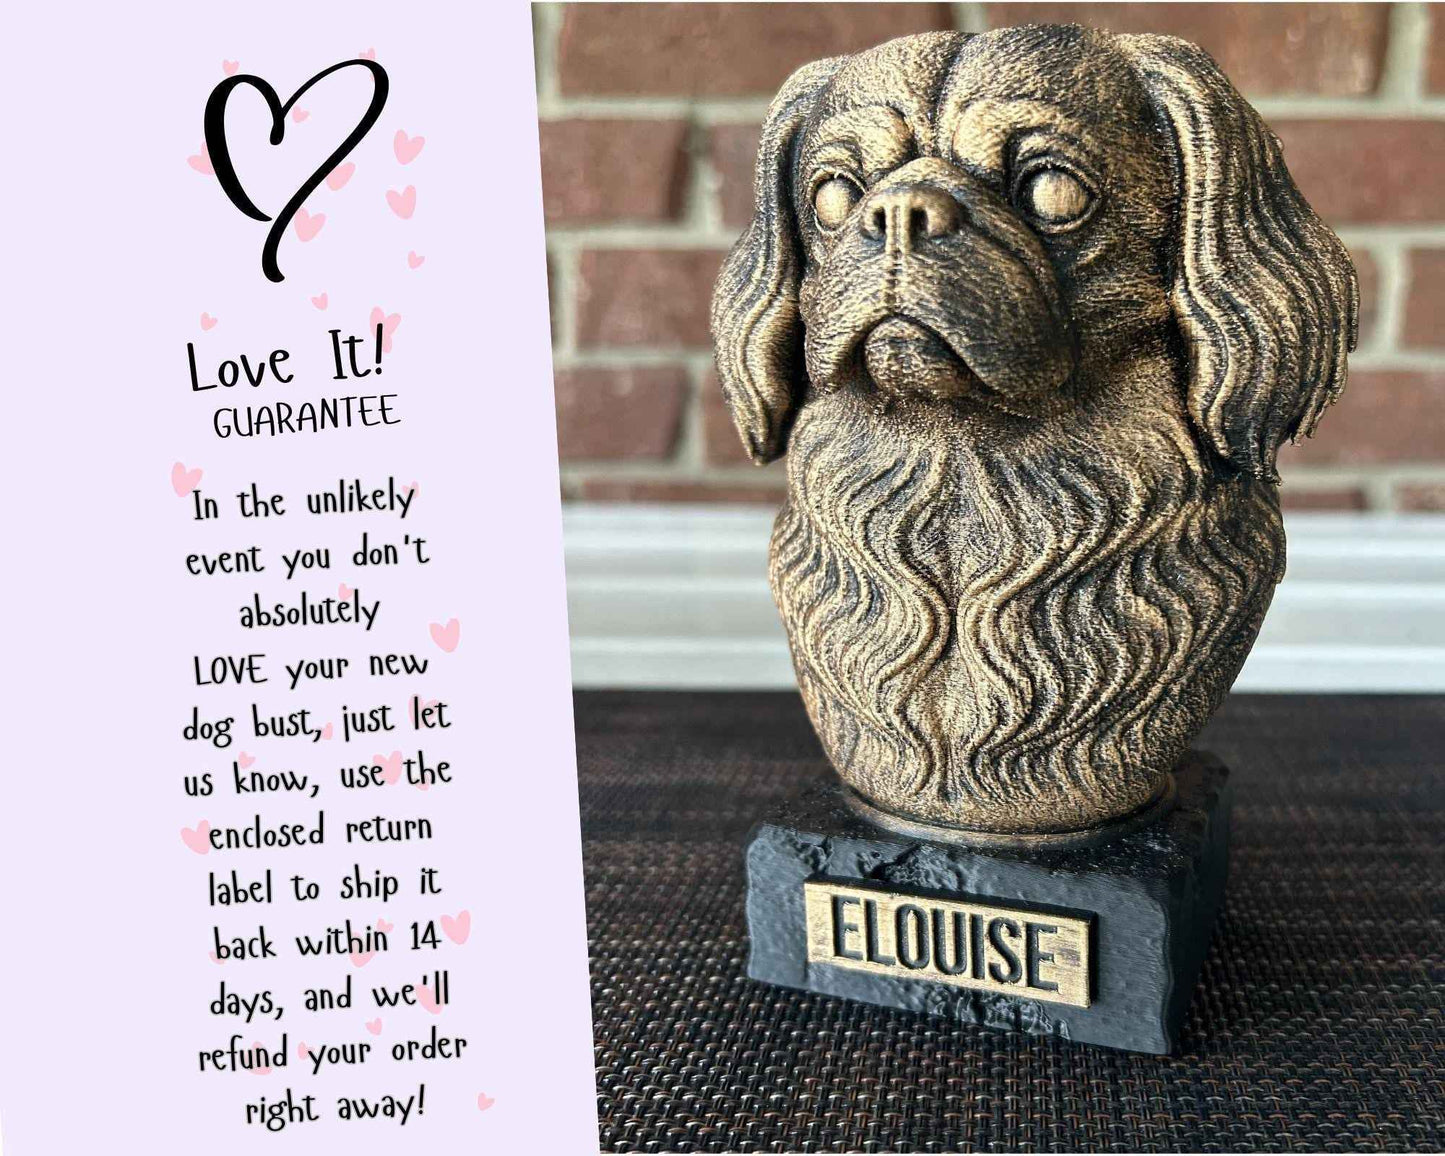 Love It!
GUARANTEE
In the unlikely
event you don't
absolutely
LOVE your new
dog bust, just let
us know, use the
enclosed return
label to ship it
back within 14
days, and we'll
refund your order
right away!
ELOUISE